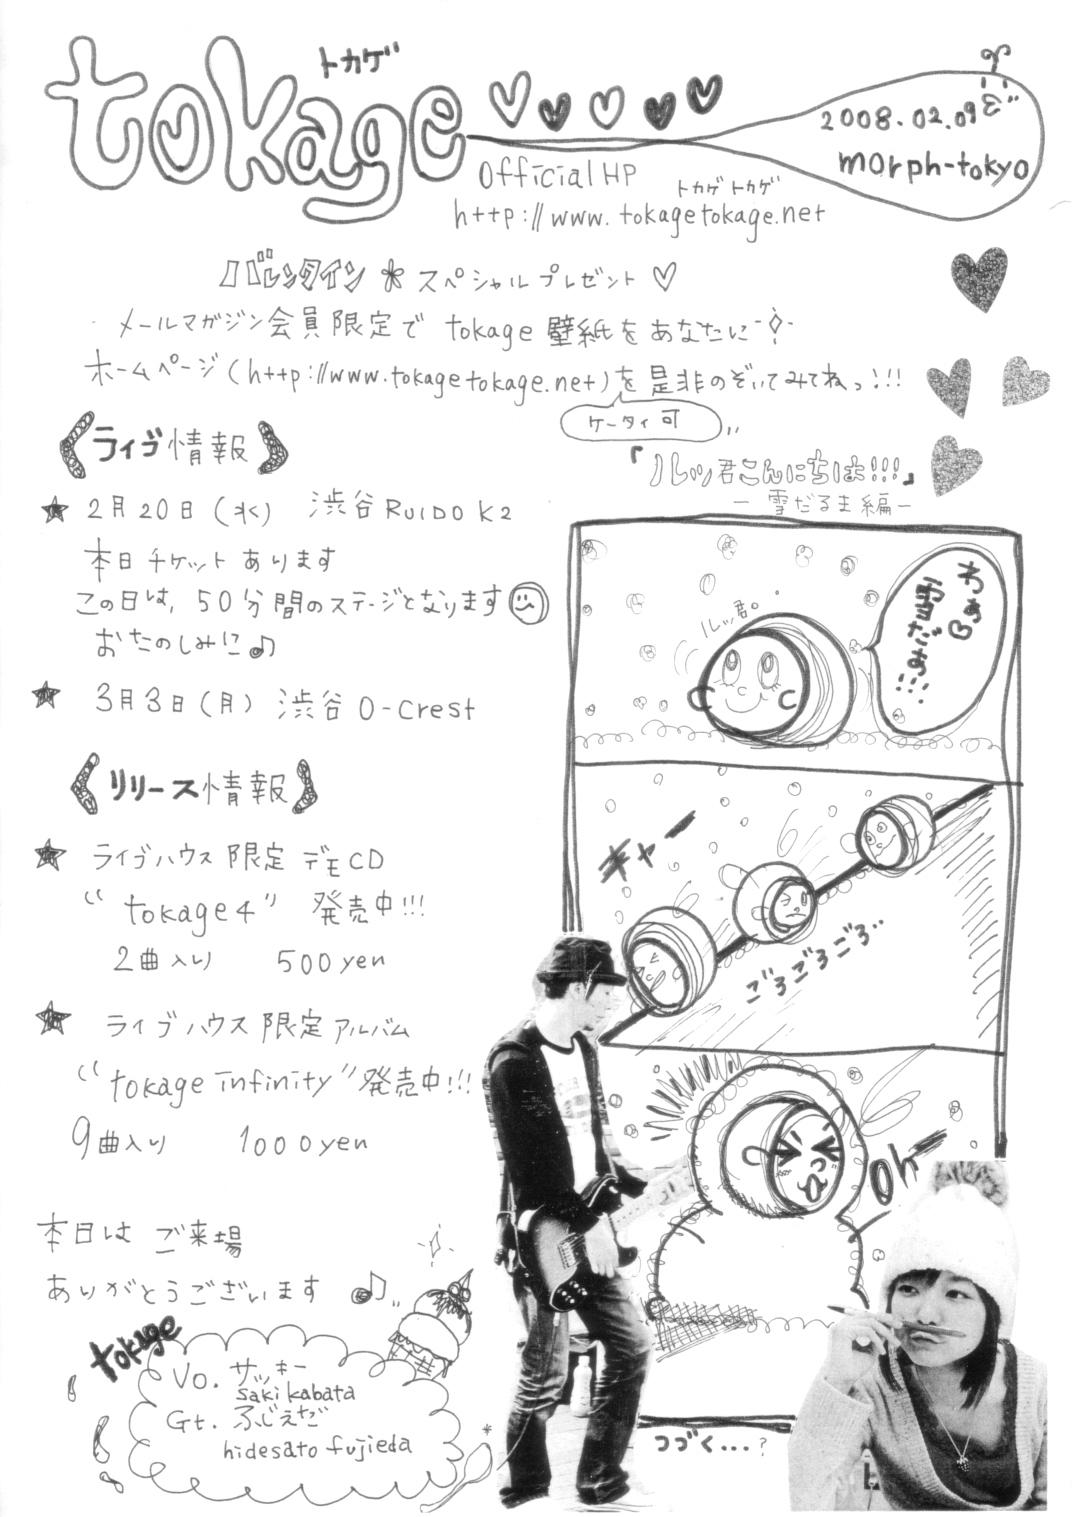 トカゲ
tokage
2008.02.09
morph-tokyo
Official HP
トカゲ トカゲ
http://www.tokagetokage.net
バレンタイン*スペシャルプレゼント♡
メールマガジン会員限定で tokage 壁紙をあなたに
ホームページ(http://www.tokagetokage.net)を是非のぞいてみてねっ!!!
ケータイ可
《ライブ情報》
★2月20日(水) 渋谷RUIDO K2
本日チケットあります
この日は、50分間のステージとなります
おたのしみに♪
★3月3日(月) 渋谷 O-crest
《リリース情報》
★ライブハウス限定デモCD
“tokage4” 発売中!!!
2曲入り 500yen
★ライブハウス限定アルバム
“tokage infinity”発売中!!!
9曲入り 1000yen
本日は ご来場
ありがとうございます ♪
tokage
Vo. サッキー
saki kabata
Gt. ふじえだ
hidesato fujieda
「ルッ君こんにちは!!!」
-雪だるま編-
ルッ君。
わぁ♡
雪だぁ!!!
ギャー
ごろごろごろ..
Oh
つづく...?